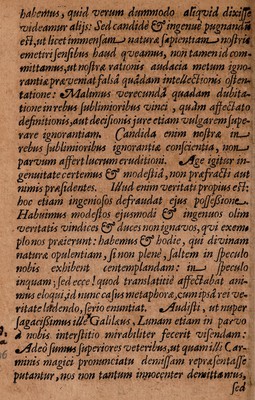 habemus, quid verum dummodo aliquid dixisse
videamur alijs: Sed candidè & ingenuè pugnandũ
est, ut licet immensam naturæ sapientiam nostris
emetiri sensibus haud queamus, non tamen id com-
mittamus, ut nostræ rationis audacia metum igno-
rantiæ præveniat falsâ quâdam intellectionis osten-
tatione: Malimus verecundâ quadam dubita-
tione in rebus sublimioribus vinci, quàm affectato
definitionis, aut decisionis jure etiam vulgarem supe-
rare ignorantiam. Candida enim nostræ in
rebus sublimioribus ignorantiæ conscientia, non
parvum affert lucrum eruditioni. Age igitur in-
genuitate certemus & modestiâ, non præfracti aut
nimis præfidentes. Illud enim veritati propius est:
hoc etiam ingeniosos defraudat ejus possessione.
Habuimus modestos ejusmodi & ingenuos olim
veritatis vindices & duces non ignavos, qui exem-
plo nos præierunt: habemus & hodie, qui divinam
naturæ opulentiam, si non plenè, saltem in speculo
nobis exhibent contemplandam: in speculo
inquam; sed ecce! quod translatitiè affectabat ani-
mus eloqui, id nunc casus metaphorâ, cum ipsâ rei ve-
ritate ludendo, seriò enuntiat. Audisti, ut nuper
sagacissimus ille Galilæus, Lunam etiam in parvo
à nobis interstitio mirabiliter fecerit visendam:
Adeò sumus superiores veteribus, ut quàm illi Car-
minis magici pronunciatu demissam repræsentasse
putantur, nos non tantum innocenter demittamus,
sed